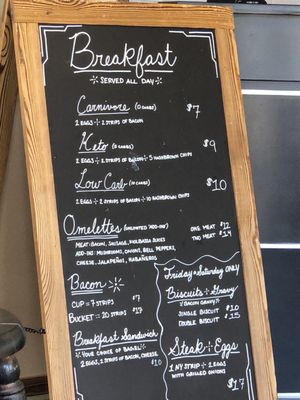 Breakfast
SERVED ALL DAY
Carnivore (0 CARBS) $7
2 EGGS ÷ 2 STRIPS OF BACON
Keto (5 CARBS) $9
2 EGGS ÷ 2 STRIPS OF BACON ÷ 5 HASHBROWN CHIPS
Low Carb (10 CARBS) $10
2 EGGS ÷ 2 STRIPS OF BACON ÷ 10 HASHBROWN CHIPS
Omelettes (UNLIMITED 'ADD-INS')
MEAT: BACON, SAUSAGE, KOLBASSA SLICES
ADD-INS: MUSHROOMS, ONIONS, BELL PEPPERS,
CHEESE, JALAPEÑOS, HABAÑEROS
ONE MEAT $12
TWO MEAT $14
Bacon
CUP = 7 STRIPS $7
BUCKET = 20 STRIPS $17
Breakfast Sandwich
YOUR CHOICE OF BAGEL
2 EGGS, 2 STRIPS OF BACON, CHEESE
$10
Friday & Saturday ONLY
Biscuits ÷ Gravy
(BACON GRAVY)
SINGLE BISCUIT $10
DOUBLE BISCUIT $15
Steak ÷ Eggs
1 NY STRIP ÷ 2 EGGS
WITH GRILLED ONIONS
$17